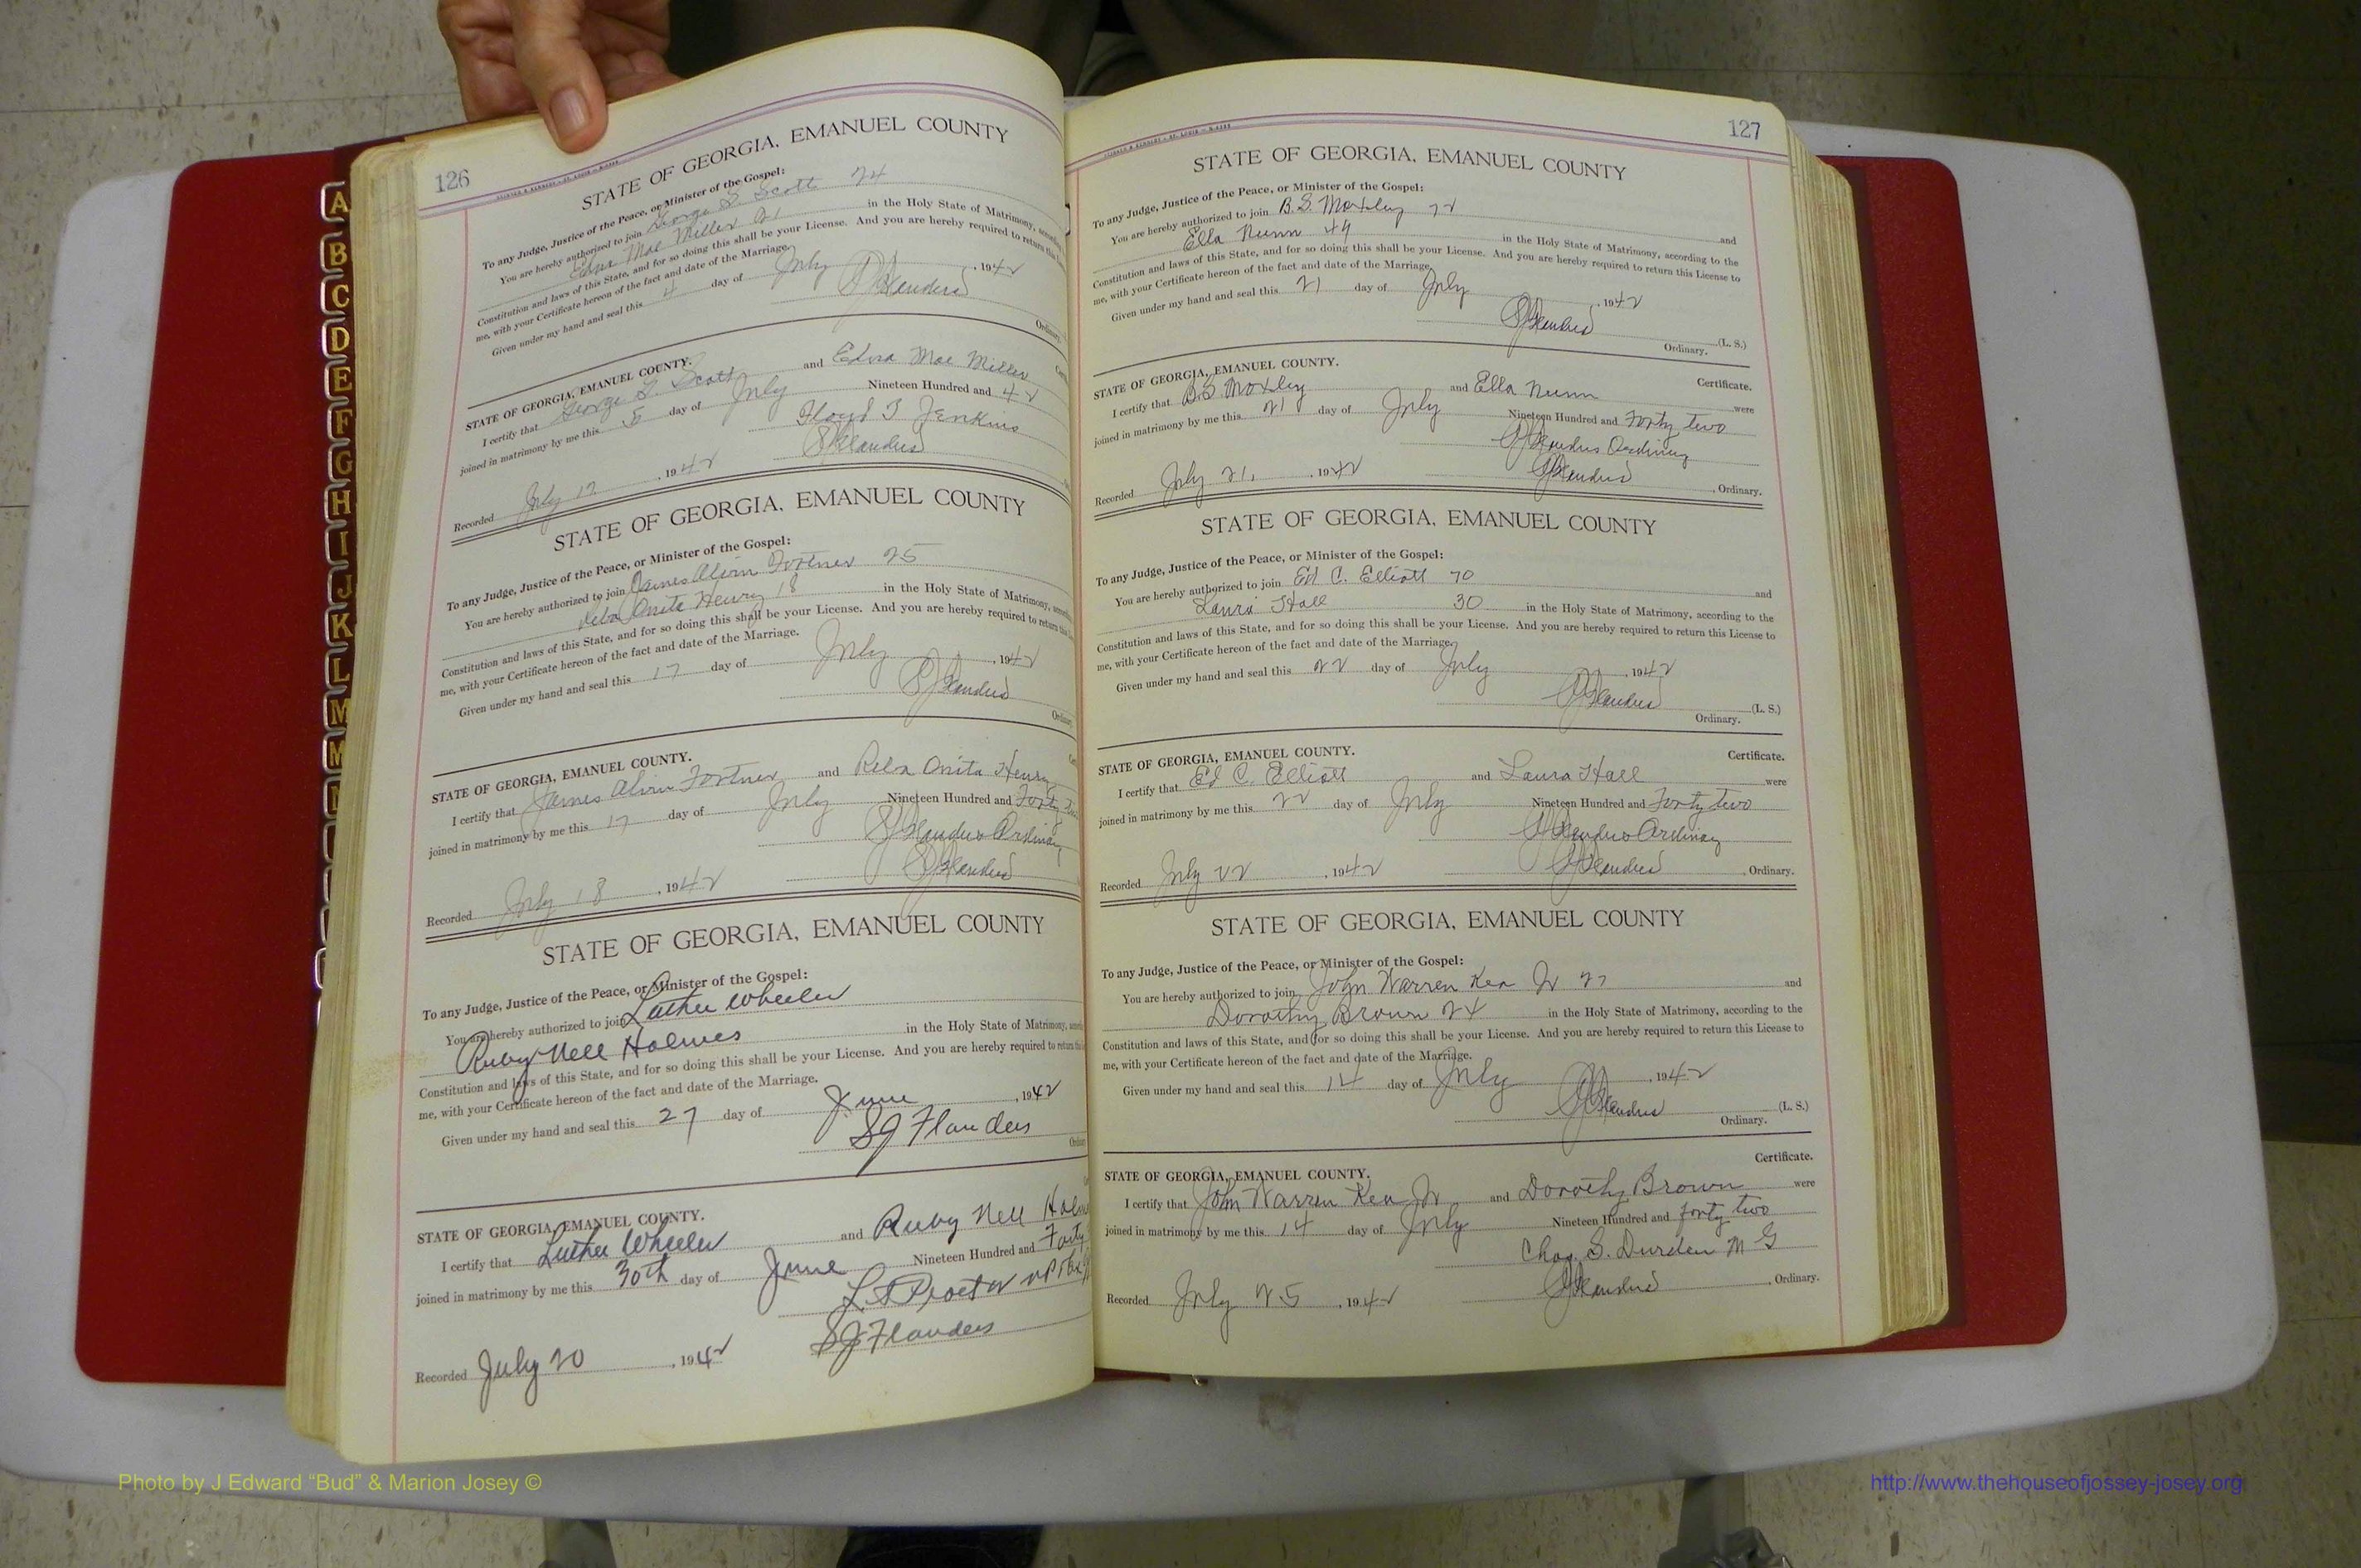 126
STATE OF GEORGIA, EMANUEL COUNTY
To any Judge, Justice of the Peace, or Minister of the Gospel:
You are hereby authorized to join George S. Scott 24
Edna Mae Miller 21 in the Holy State of Matrimony,
Constitution and laws of this State, and for so doing this shall be your License. And you are hereby required to return this
me, with your Certificate hereon of the fact and date of the Marriage.
Given under my hand and seal this 4 day of July, 1942
SJ Flanders
STATE OF GEORGIA, EMANUEL COUNTY.
I certify that George S. Scott and Edna Mae Miller
joined in matrimony by me this 5 day of July Nineteen Hundred and 42
Floyd Jenkins
SJ Flanders
Recorded July 17, 1942
STATE OF GEORGIA, EMANUEL COUNTY
To any Judge, Justice of the Peace, or Minister of the Gospel:
You are hereby authorized to join James Alvin Fortner 25
Reba Anita Henry 18 in the Holy State of Matrimony,
Constitution and laws of this State, and for so doing this shall be your License. And you are hereby required to return this
me, with your Certificate hereon of the fact and date of the Marriage.
Given under my hand and seal this 17 day of July, 1942
SJ Flanders
STATE OF GEORGIA, EMANUEL COUNTY.
I certify that James Alvin Fortner and Reba Anita Henry
joined in matrimony by me this 17 day of July Nineteen Hundred and Forty
SJ Flanders Ordinary
SJ Flanders
Recorded July 18, 1942
STATE OF GEORGIA, EMANUEL COUNTY
To any Judge, Justice of the Peace, or Minister of the Gospel:
You are hereby authorized to join Luther Wheeler
Ruby Nell Holmes in the Holy State of Matrimony,
Constitution and laws of this State, and for so doing this shall be your License. And you are hereby required to return
me, with your Certificate hereon of the fact and date of the Marriage.
Given under my hand and seal this 27 day of June, 1942
SJ Flanders
STATE OF GEORGIA, EMANUEL COUNTY.
I certify that Luther Wheeler and Ruby Nell
joined in matrimony by me this 30th day of June Nineteen Hundred and Forty
Proctor
SJ Flanders
Recorded July 20, 1942
127
STATE OF GEORGIA, EMANUEL COUNTY
To any Judge, Justice of the Peace, or Minister of the Gospel:
You are hereby authorized to join B.S. Moxley 72 and
Ella Nunn 49 in the Holy State of Matrimony, according to the
Constitution and laws of this State, and for so doing this shall be your License. And you are hereby required to return this License to
me, with your Certificate hereon of the fact and date of the Marriage.
Given under my hand and seal this 21 day of July, 1942
SJ Flanders (L. S.)
Ordinary.
STATE OF GEORGIA, EMANUEL COUNTY. Certificate.
I certify that B.S. Moxley and Ella Nunn were
joined in matrimony by me this 21 day of July Nineteen Hundred and Forty two
SJ Flanders Ordinary
Recorded July 21, 1942 SJ Flanders, Ordinary.
STATE OF GEORGIA, EMANUEL COUNTY
To any Judge, Justice of the Peace, or Minister of the Gospel:
You are hereby authorized to join Ed C. Elliott 70 and
Laura Hall 30 in the Holy State of Matrimony, according to the
Constitution and laws of this State, and for so doing this shall be your License. And you are hereby required to return this License to
me, with your Certificate hereon of the fact and date of the Marriage.
Given under my hand and seal this 22 day of July, 1942
SJ Flanders (L. S.)
Ordinary.
STATE OF GEORGIA, EMANUEL COUNTY. Certificate.
I certify that Ed C. Elliott and Laura Hall were
joined in matrimony by me this 22 day of July Nineteen Hundred and Forty two
SJ Flanders Ordinary
Recorded July 22, 1942 SJ Flanders, Ordinary.
STATE OF GEORGIA, EMANUEL COUNTY
To any Judge, Justice of the Peace, or Minister of the Gospel:
You are hereby authorized to join John Warren Kea Jr 27 and
Dorothy Brown 24 in the Holy State of Matrimony, according to the
Constitution and laws of this State, and for so doing this shall be your License. And you are hereby required to return this License to
me, with your Certificate hereon of the fact and date of the Marriage.
Given under my hand and seal this 14 day of July, 1942
SJ Flanders (L. S.)
Ordinary.
STATE OF GEORGIA, EMANUEL COUNTY. Certificate.
I certify that John Warren Kea Jr and Dorothy Brown were
joined in matrimony by me this 14 day of July Nineteen Hundred and forty two
Chas. S. Durden M G
Recorded July 25, 1942 SJ Flanders, Ordinary.
A
B
C
D
E
F
G
H
I
J
K
L
M
Photo by J Edward “Bud” & Marion Josey ©
http://www.thehouseofjossey-josey.org